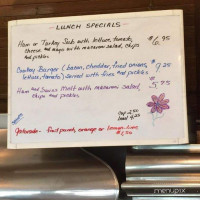 LUNCH SPECIALS
Ham or Turkey Sub with lettuce, tomato, $6.95
cheese and mayo with macaroni salad, chips
and pickle
Cowboy Burger (bacon, cheddar, fried onions, $9.25
lettuce, tomato) served with fries and pickle
Ham and Swiss Melt with macaroni salad, 5.95
chips and pickle
Cup 2.50
Bowl
Gatorade - fruit punch, orange or lemon-lime
menupix